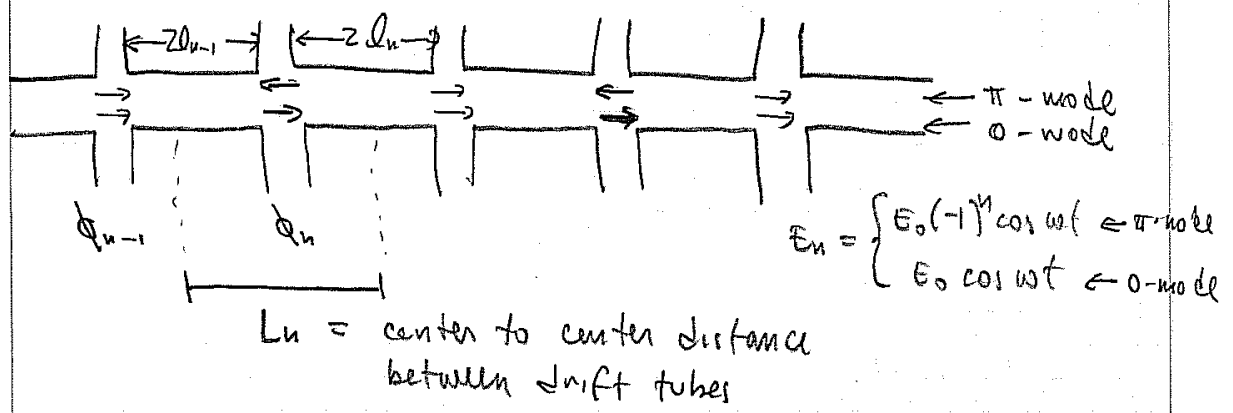 2l_{n-1}
2l_n
π-mode
0-mode
ϕ_{n-1}
ϕ_n
E_n = { E_0(-1)^n cos ωt ← π-mode
E_0 cos ωt ← 0-mode
L_n = center to center distance
between drift tubes